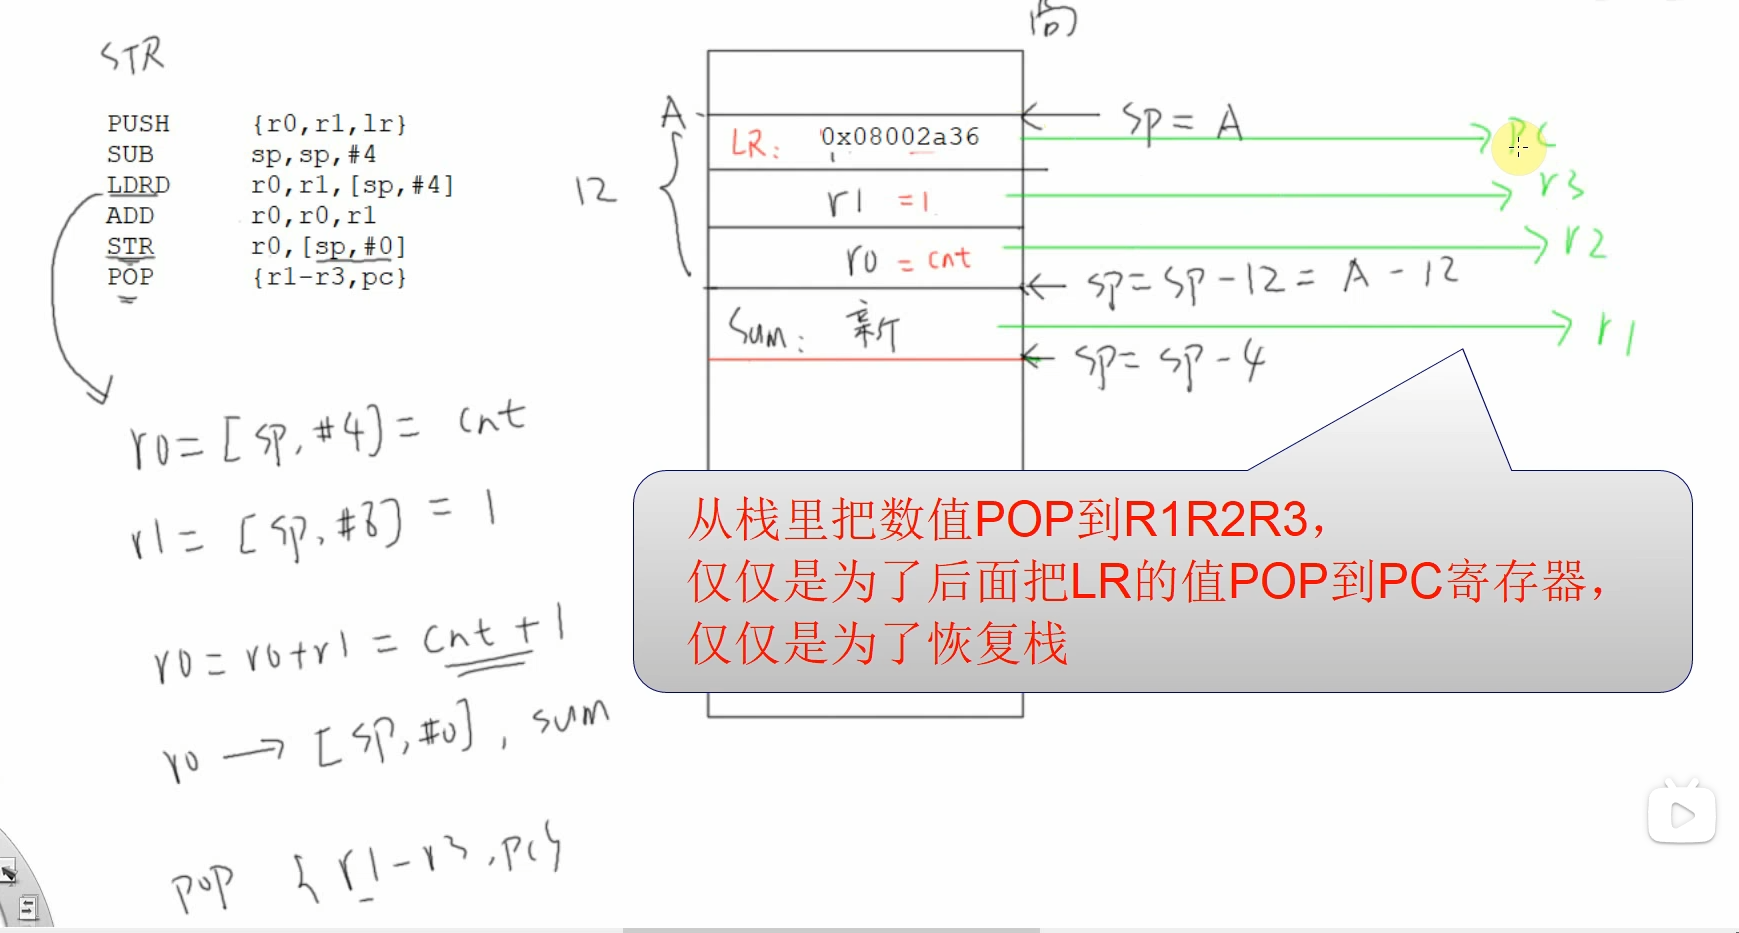 STR
PUSH {r0,r1,lr}
SUB sp,sp,#4
LDRD r0,r1,[sp,#4]
ADD r0,r0,r1
STR r0,[sp,#0]
POP {r1-r3,pc}
r0= [sp,#4]= cnt
r1= [sp,#8] = 1
r0= r0+r1 = cnt+1
r0 → [sp,#0], sum
pop {r1-r3,pc}
高
A
sp= A
LR: 0x08002a36
pc
12
r1 =1
r3
r0 = cnt
r2
sp= sp-12= A-12
Sum: 新
r1
sp= sp-4
从栈里把数值POP到R1R2R3，
仅仅是为了后面把LR的值POP到PC寄存器，
仅仅是为了恢复栈